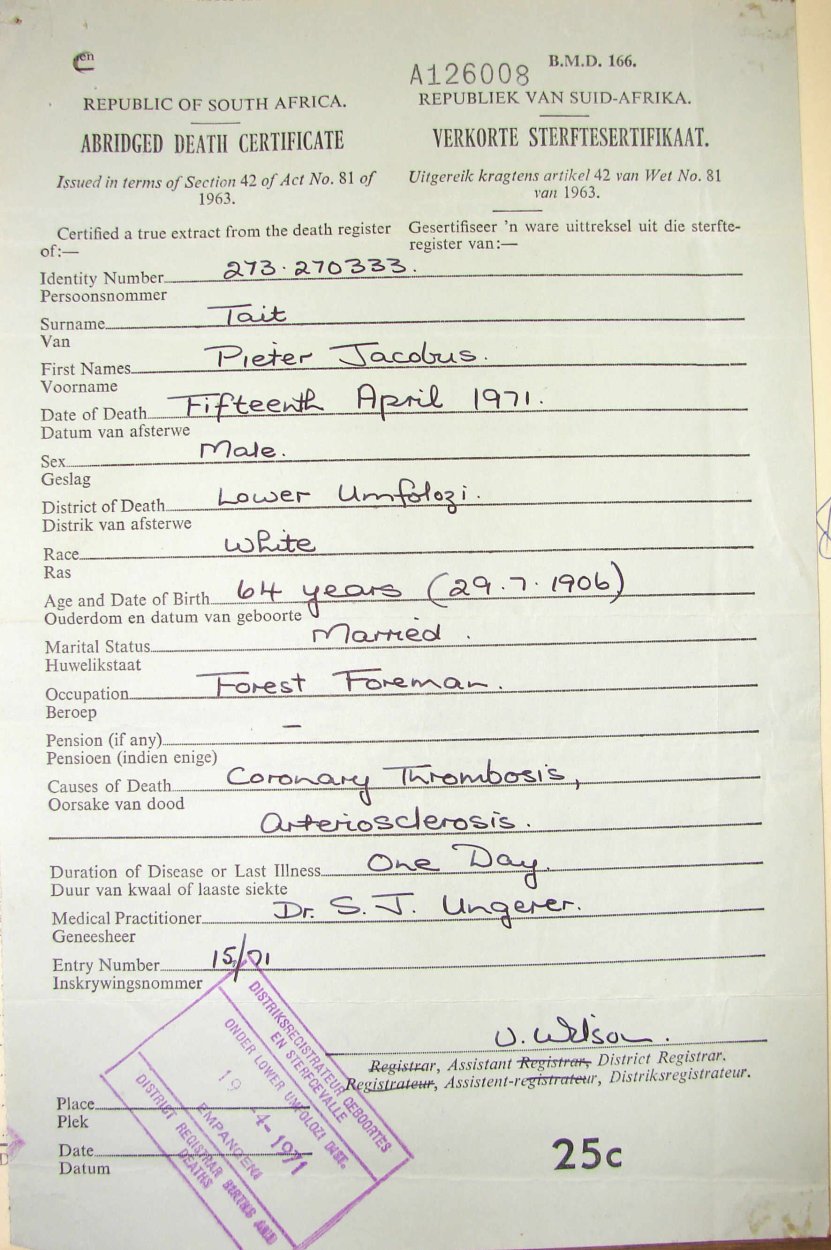 en
A126008 B.M.D. 166.
REPUBLIC OF SOUTH AFRICA.
REPUBLIEK VAN SUID-AFRIKA.
ABRIDGED DEATH CERTIFICATE
VERKORTE STERFTESERTIFIKAAT.
Issued in terms of Section 42 of Act No. 81 of
1963.
Uitgereik kragtens artikel 42 van Wet No. 81
van 1963.
Certified a true extract from the death register
of:—
Gesertifiseer 'n ware uittreksel uit die sterfte-
register van:—
Identity Number 273.270333.
Persoonsnommer
Surname Tait
Van
First Names Pieter Jacobus.
Voorname
Date of Death Fifteenth April 1971.
Datum van afsterwe
Sex Male.
Geslag
District of Death Lower Umfolozi.
Distrik van afsterwe
Race White
Ras
Age and Date of Birth 64 years (29.7.1906)
Ouderdom en datum van geboorte
Marital Status Married.
Huwelikstaat
Occupation Forest Foreman.
Beroep
Pension (if any) –
Pensioen (indien enige)
Causes of Death Coronary Thrombosis,
Oorsake van dood
Arteriosclerosis.
Duration of Disease or Last Illness One Day.
Duur van kwaal of laaste siekte
Medical Practitioner Dr. S. J. Ungerer.
Geneesheer
Entry Number 15/71
Inskrywingsnommer
Registrar, Assistant Registrar, District Registrar.
Registrateur, Assistent-registrateur, Distriksregistrateur.
Place
Plek
Date
Datum
DISTRIKSREGISTRATEUR GEBOORTES
EN STERFGEVALLE
ONDER LOWER UMFOLOZI DIST.
19 -4- 1971
EMPANGENI
DISTRICT REGISTRAR BIRTHS AND
DEATHS
25c